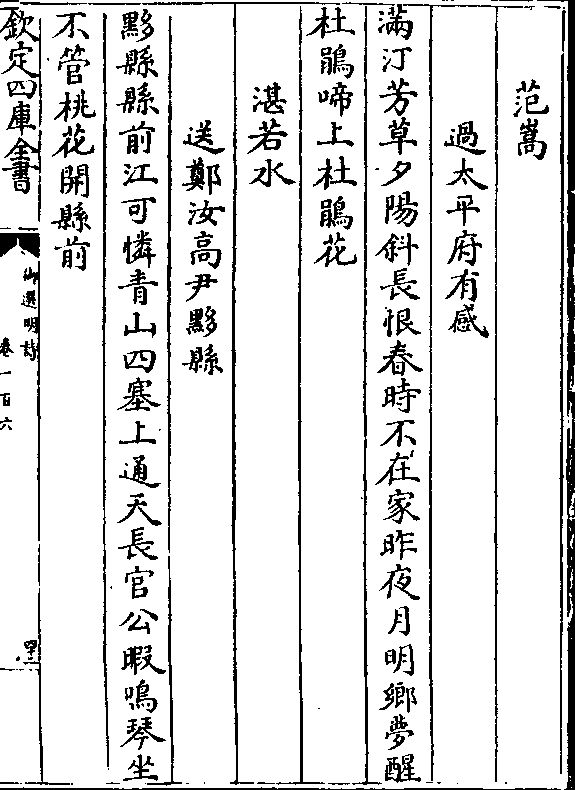 范嵩
過太平府有感
滿汀芳草夕陽斜長恨春時不在家昨夜月明鄉夢醒
杜鵑啼上杜鵑花
湛若水
送鄭汝高尹黟縣
黟縣縣前江可憐青山四塞上通天長官公暇鳴琴坐
不管桃花開縣前
欽定四庫全書
御選明詩
卷一百六